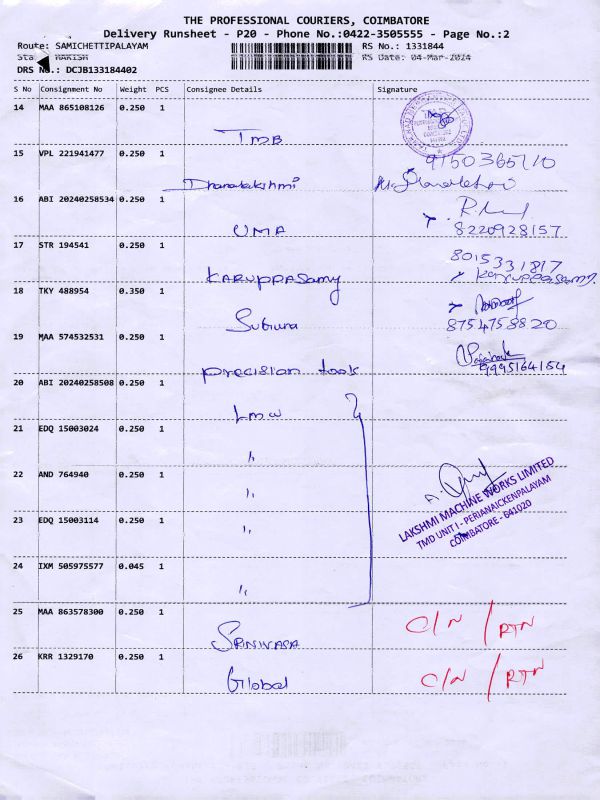 THE PROFESSIONAL COURIERS, COIMBATORE
Delivery Runsheet - P20 - Phone No.:0422-3505555 - Page No.:2
Route: SAMICHETTIPALAYAM
RS No.: 1331844
RS Date: 04-Mar-2024
DRS No.: DCJB133184402
S No Consignment No Weight PCS Consignee Details Signature
14 MAA 865108126 0.250 1
TMB
15 VPL 221941477 0.250 1
9150365710
Dhanalakshmi
16 ABI 20240258534 0.250 1
UMA 8220928157
17 STR 194541 0.250 1
8015331817
KARUPPASamy Karuppasamy
18 TKY 488954 0.350 1
Suguna 8754758820
19 MAA 574532531 0.250 1
precision tools 9995164154
20 ABI 20240258508 0.250 1
Lmw
21 EDQ 15003024 0.250 1
"
22 AND 764940 0.250 1
"
LAKSHMI MACHINE WORKS LIMITED
TMD UNIT I - PERIANAICKENPALAYAM
COIMBATORE - 641020
23 EDQ 15003114 0.250 1
"
24 IXM 505975577 0.045 1
"
25 MAA 863578300 0.250 1
SRINIVASA C/N / RTN
26 KRR 1329170 0.250 1
Global C/N / RTN